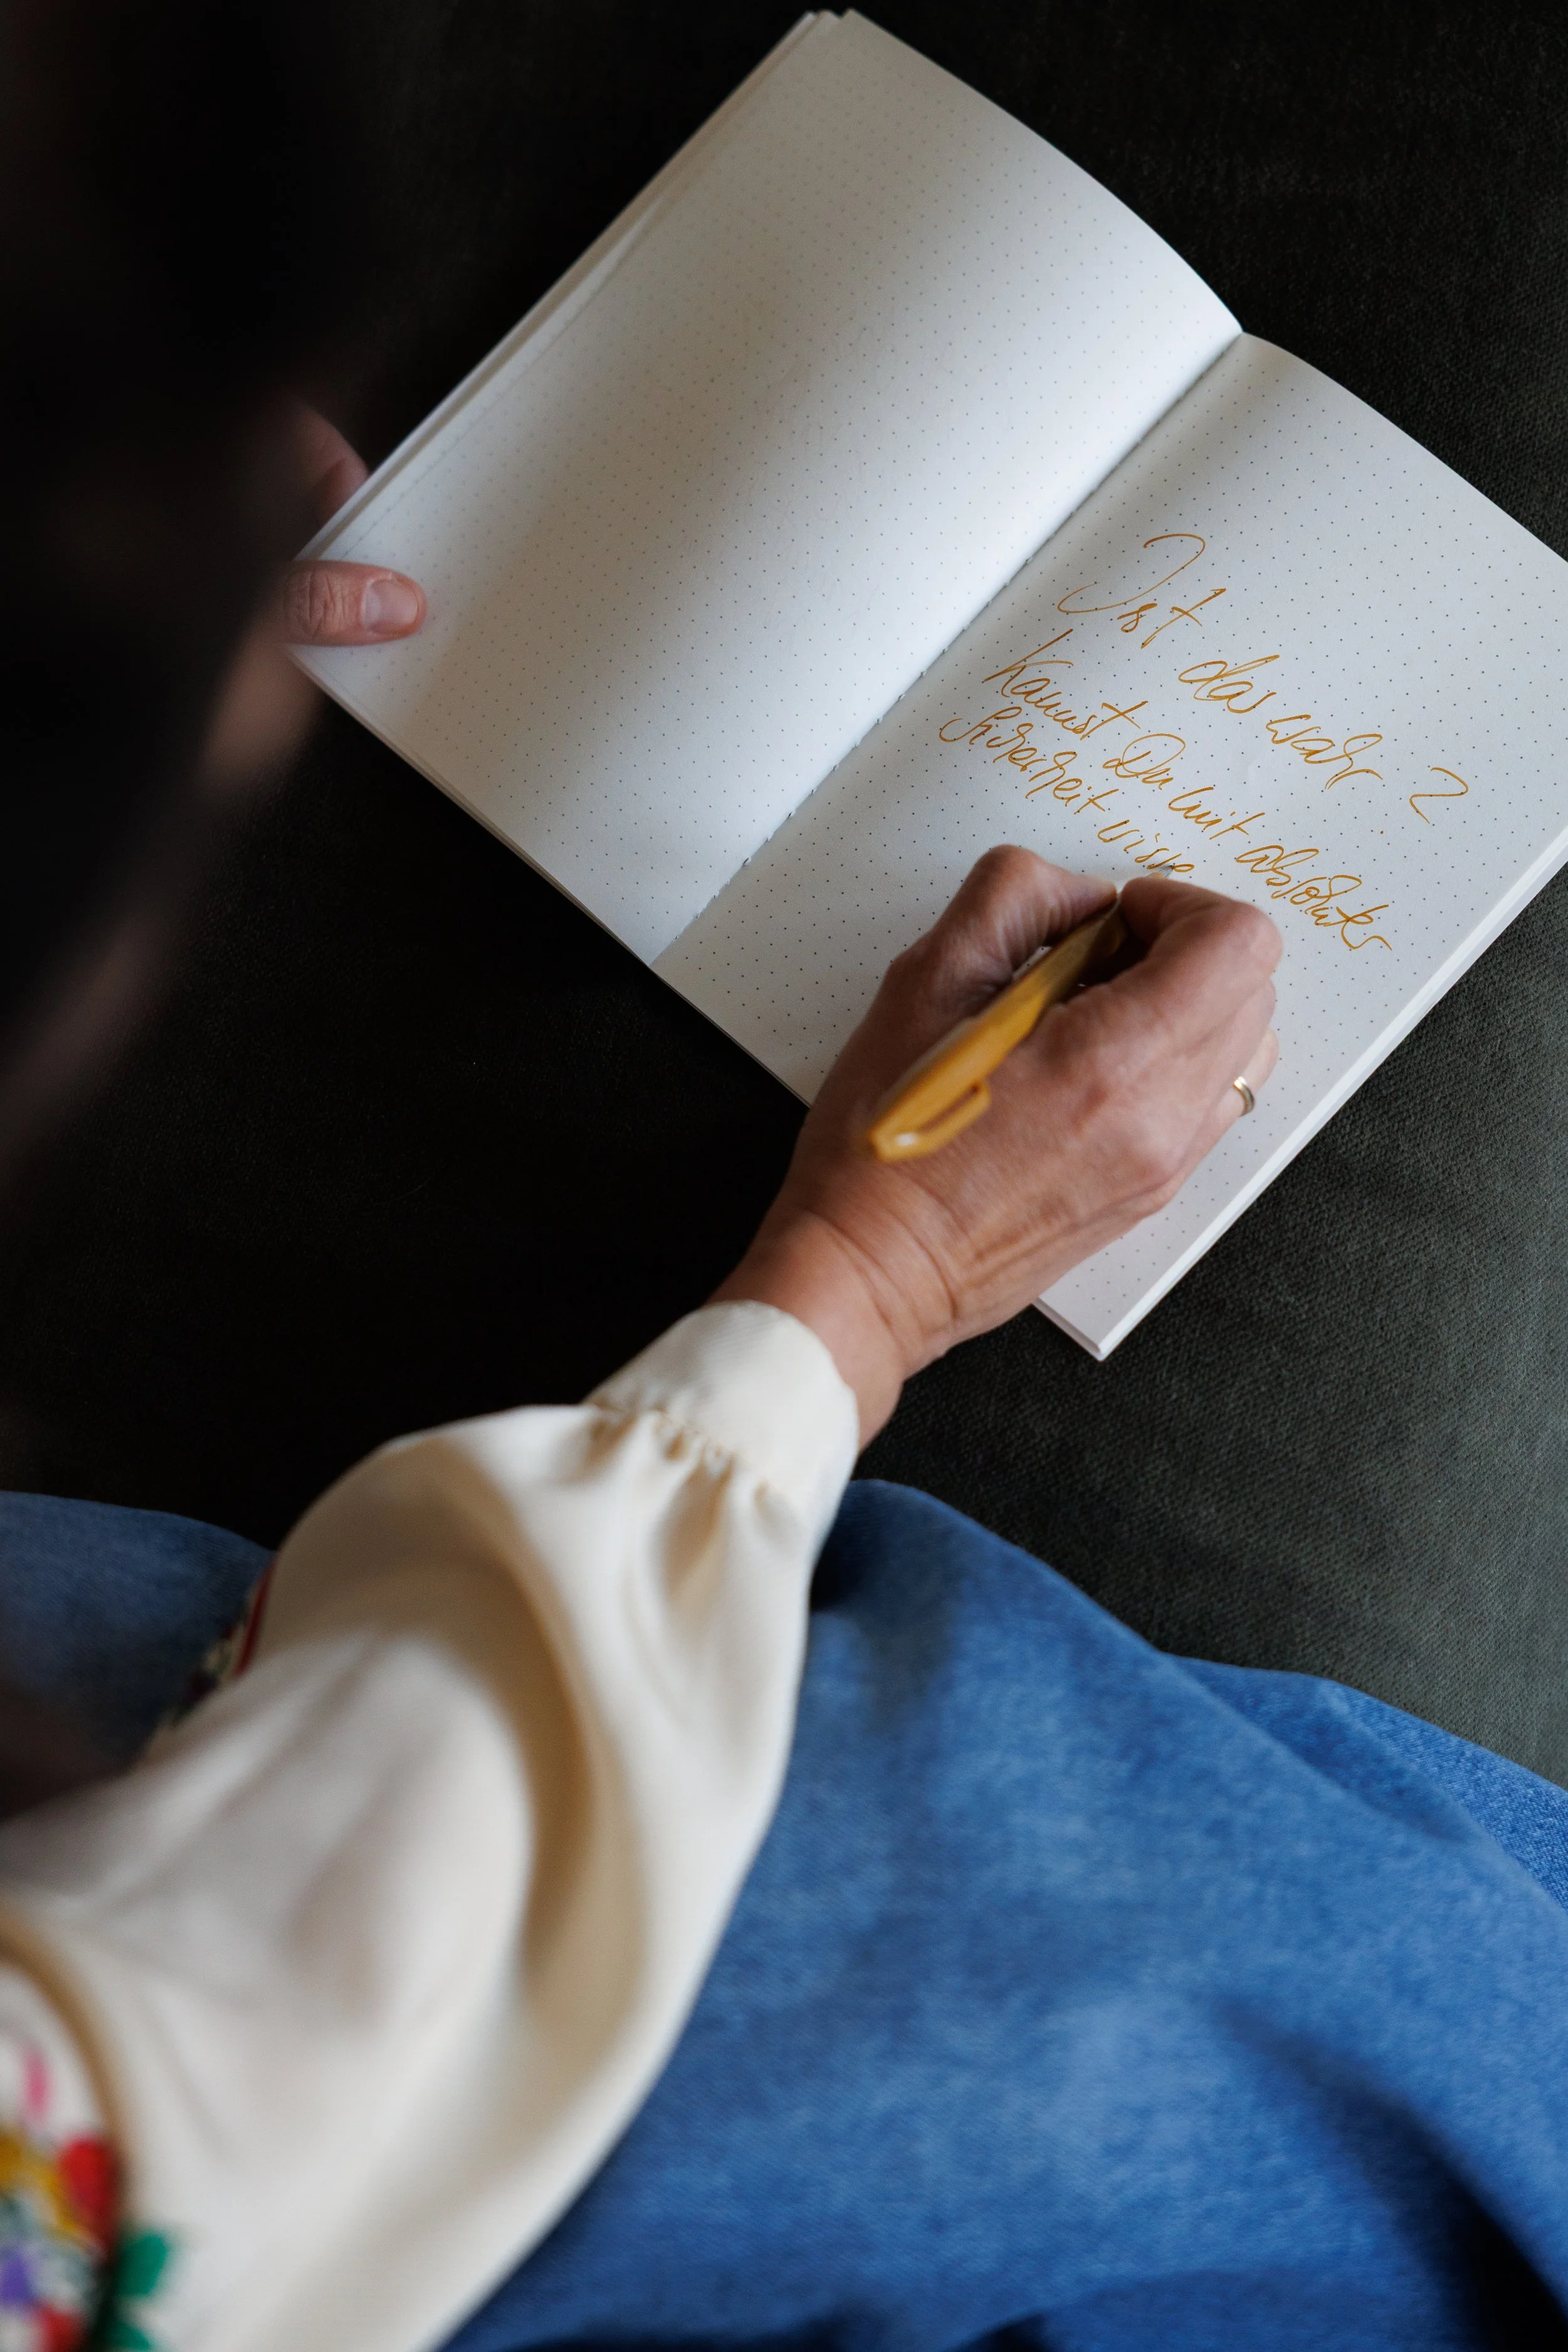 Ist das wahr?
Kannst Du mit absoluter
Sicherheit wisse